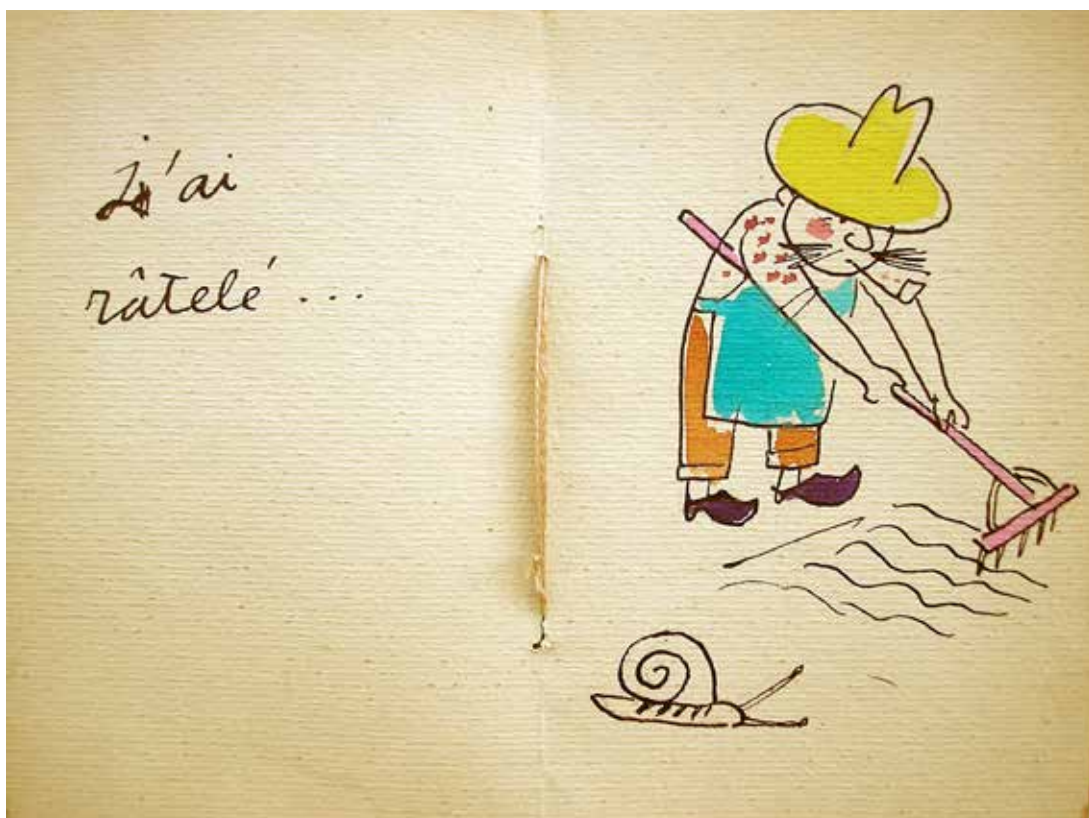 j'ai
râtelé ...